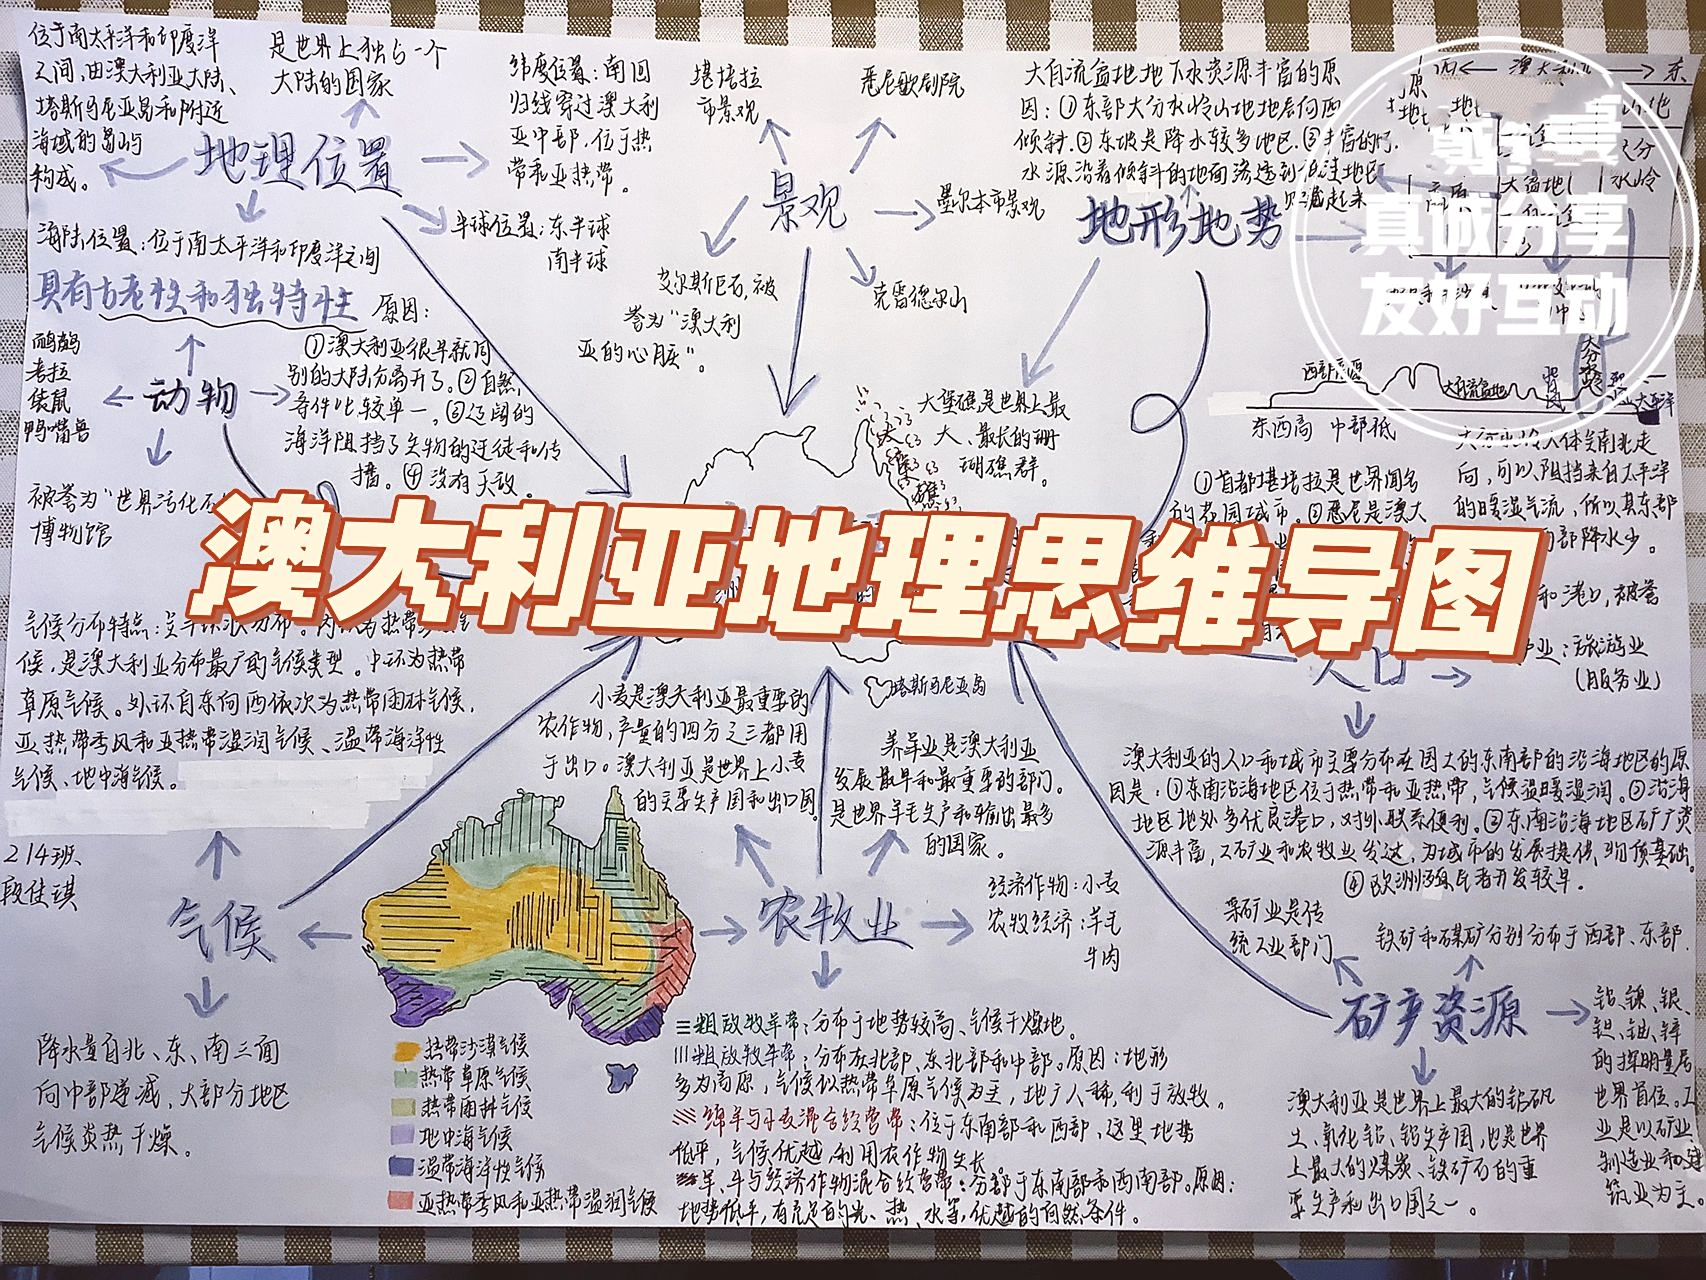 位于南太平洋和印度洋
之间,由澳大利亚大陆、
塔斯马尼亚岛和附近
海域的岛屿
构成。
是世界上独占一个
大陆的国家
地理位置
纬度位置:南回
归线穿过澳大利
亚中部,位于热
带和亚热带。
半球位置:东半球
南半球
海陆位置:位于南太平洋和印度洋之间
堪培拉
市景观
悉尼歌剧院
景观
墨尔本市景观
艾尔斯巨石,被
誉为"澳大利
亚的心脏"。
克雷德尔山
大自流盆地地下水资源丰富的原
因:①东部大分水岭山地地层向西
倾斜.②东坡是降水较多地区.③丰富的
水源沿着倾斜的地面渗透到
地形地势
澳大利亚
东
水岭
真诚分享
友好互动
西部高原
大自流盆地
东西高 中部低
大堡礁是世界上最
大、最长的珊
瑚礁群。
具有古老性和独特性
原因:
鸸鹋
考拉
袋鼠
鸭嘴兽
动物
①澳大利亚很早就同
别的大陆分离开了.②自然
条件比较单一.③辽阔的
海洋阻挡了生物的迁徙和传
播。④没有天敌。
被誉为"世界活化石
博物馆
①首都堪培拉是世界闻名
的花园城市。②悉尼是澳大
大分水岭大体呈南北走
向,可以阻挡来自太平洋
的暖湿气流,所以其东部
部降水少。
澳大利亚地理思维导图
和港口,被誉
业:旅游业
(服务业)
人口
气候分布特点:呈半环状分布。
候,是澳大利亚分布最广的气候类型。中环为热带
草原气候。外环自东向西依次为热带雨林气候,
亚热带季风和亚热带湿润气候、温带海洋性
气候、地中海气候。
214班
段佳琪
气候
降水量自北、东、南三面
向中部递减,大部分地区
气候炎热干燥。
小麦是澳大利亚最重要的
农作物,产量的四分之三都用
于出口。澳大利亚是世界上小麦
的主要生产国和出口国
塔斯马尼亚岛
养羊业是澳大利亚
发展最早和最重要的部门.
是世界羊毛生产和输出最多
的国家。
农牧业
经济作物:小麦
农牧经济:羊毛
牛肉
澳大利亚的人口和城市主要分布在国土的东南部的沿海地区的原
因是:①东南沿海地区位于热带和亚热带,气候温暖湿润。②沿海
地区地处多优良港口,对外联系便利。③东南沿海地区矿产资
源丰富,工矿业和农牧业发达,为城市的发展提供物质基础.
④欧洲殖民者开发较早。
采矿业是传
统工业部门
铁矿和煤矿分别分布于西部、东部.
矿产资源
铅、镍、银、
钽、铀、锌
的探明量居
世界首位。工
业是以矿业,
制造业和建
筑业为主。
澳大利亚是世界上最大的铝矾
土、氧化铝、铅生产国,也是世界
上最大的煤炭、铁矿石的重
要生产和出口国之一。
热带沙漠气候
热带草原气候
热带雨林气候
地中海气候
温带海洋性气候
亚热带季风和亚热带湿润气候
粗放牧羊带:分布于地势较高、气候干燥地。
粗放牧牛带:分布在北部、东北部和中部。原因:地形
多为高原,气候以热带草原气候为主,地广人稀,利于放牧。
绵羊与小麦混合经营带:位于东南部和西部,这里地势
低平,气候优越,利用农作物生长
羊、牛与经济作物混合经营带:分部于东南部和西南部。原因:
地势低平,有充足的光、热、水等,优越的自然条件。